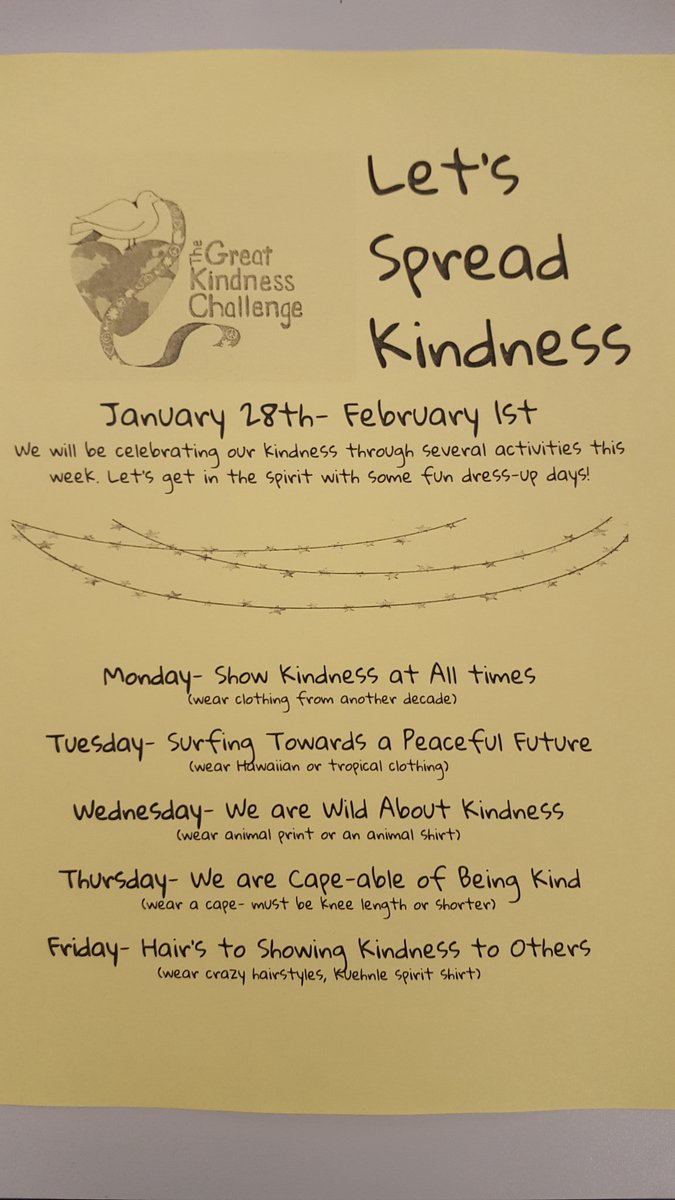 The
Great
Kindness
Challenge
Let's
Spread
Kindness
January 28th- February 1st
We will be celebrating our kindness through several activities this
week. Let's get in the spirit with some fun dress-up days!
Monday- Show Kindness at All times
(wear clothing from another decade)
Tuesday- Surfing Towards a Peaceful Future
(wear Hawaiian or tropical clothing)
Wednesday- We are Wild About Kindness
(wear animal print or an animal shirt)
Thursday- We are Cape-able of Being Kind
(wear a cape- must be knee length or shorter)
Friday- Hair's to Showing Kindness to Others
(wear crazy hairstyles, Kuehnle spirit shirt)